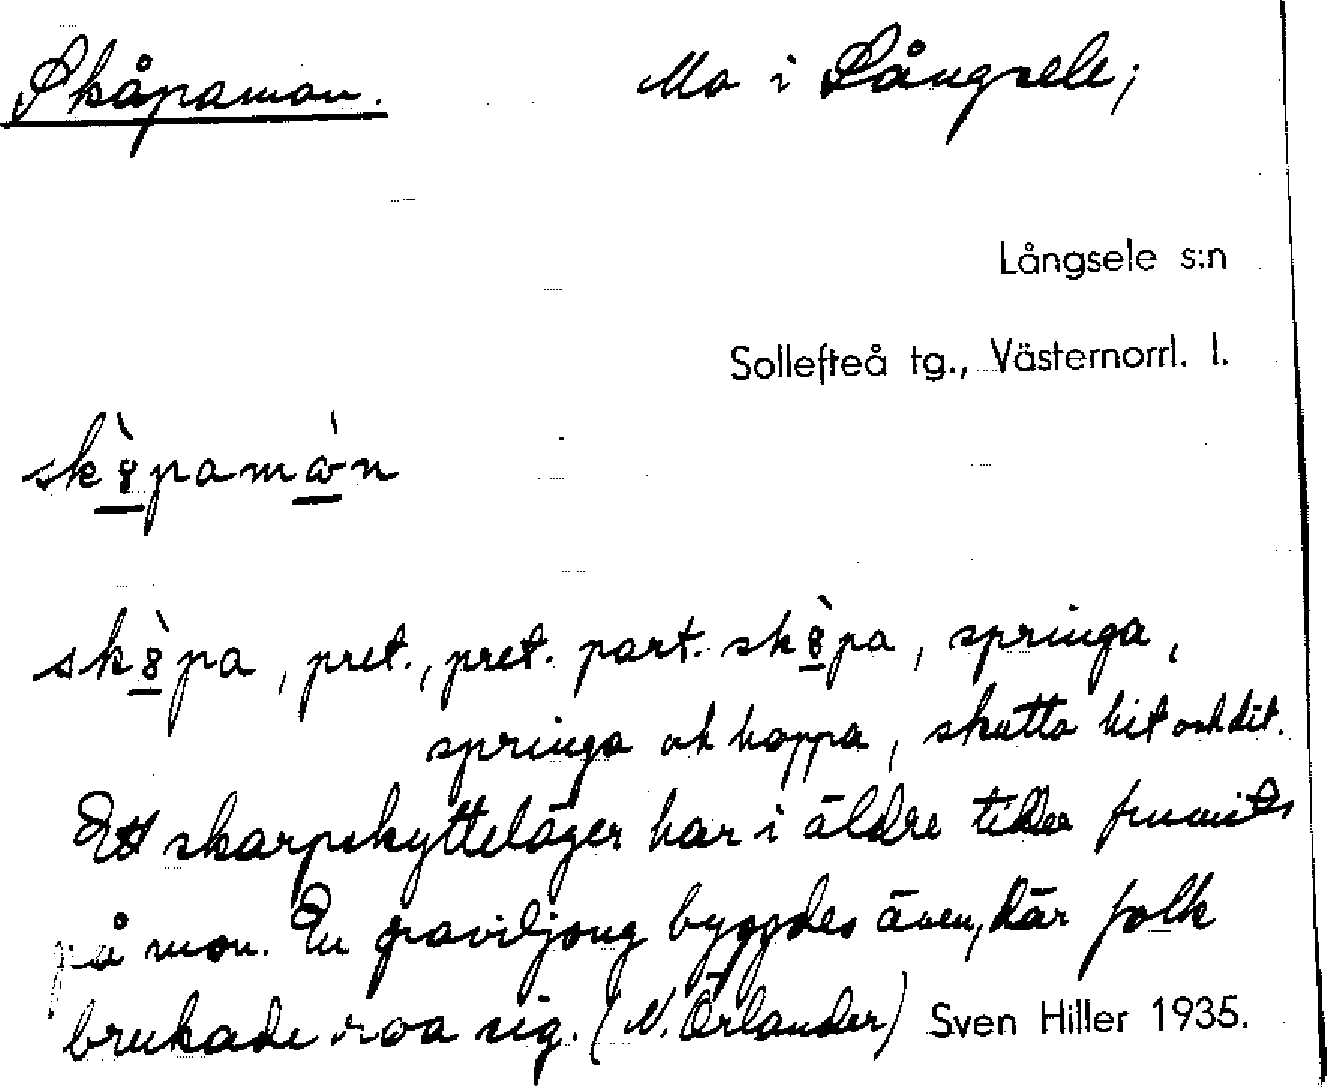 Skåpamon. Mo i Långsele;
Långsele s:n
Sollefteå tg., Västernorrl. l.
sk8̀pamɷ̀n
sk8̀pa, pret., pret. part. sk8̀pa, springa,
springa och hoppa, skutta hit och dit.
Ett skarpskytteläger har i äldre tider funnits
på mon. En paviljong byggdes även, där folk
brukade roa sig. (N. Örlander) Sven Hiller 1935.